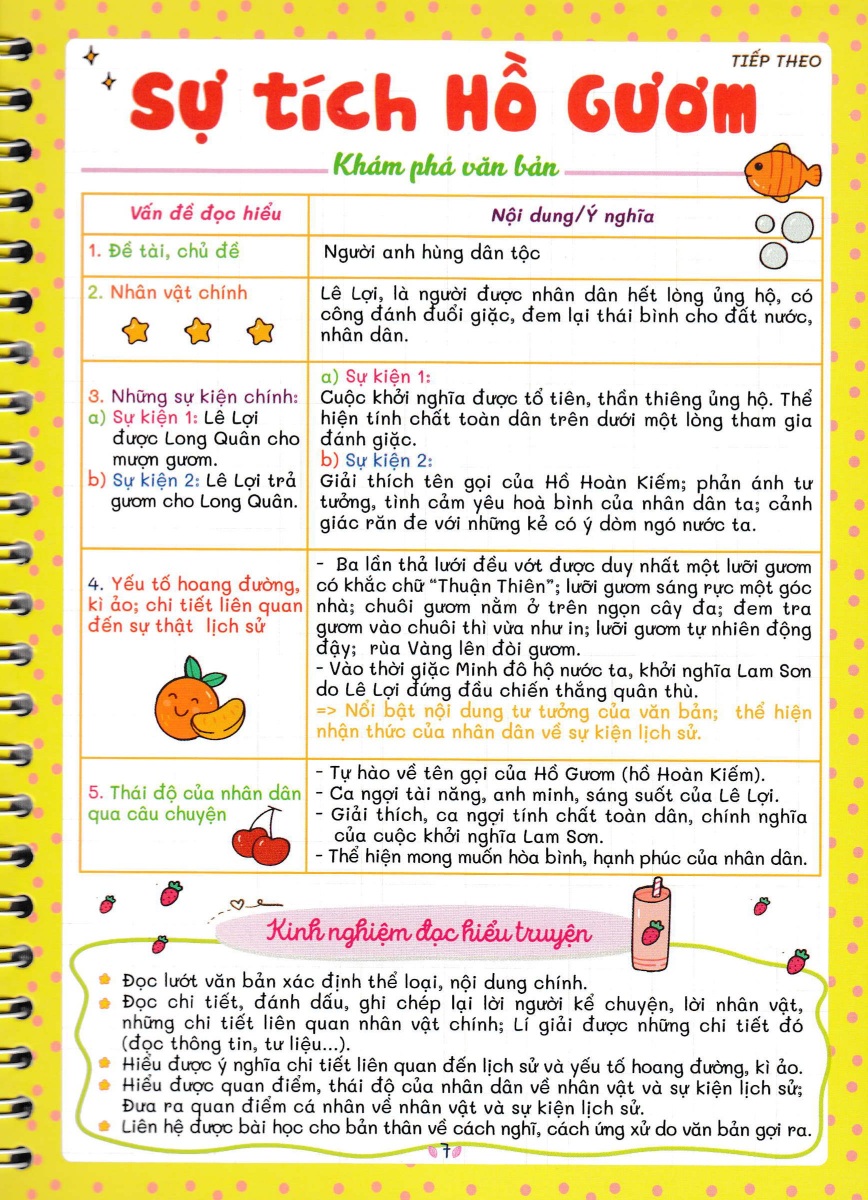 TIẾP THEO
Sự tích Hồ Gươm
Khám phá văn bản
Vấn đề đọc hiểu
Nội dung/Ý nghĩa
1. Đề tài, chủ đề
Người anh hùng dân tộc
2. Nhân vật chính
Lê Lợi, là người được nhân dân hết lòng ủng hộ, có
công đánh đuổi giặc, đem lại thái bình cho đất nước,
nhân dân.
3. Những sự kiện chính:
a) Sự kiện 1: Lê Lợi
được Long Quân cho
mượn gươm.
b) Sự kiện 2: Lê Lợi trả
gươm cho Long Quân.
a) Sự kiện 1:
Cuộc khởi nghĩa được tổ tiên, thần thiêng ủng hộ. Thể
hiện tính chất toàn dân trên dưới một lòng tham gia
đánh giặc.
b) Sự kiện 2:
Giải thích tên gọi của Hồ Hoàn Kiếm; phản ánh tư
tưởng, tình cảm yêu hoà bình của nhân dân ta; cảnh
giác răn đe với những kẻ có ý dòm ngó nước ta.
4. Yếu tố hoang đường,
kì ảo; chi tiết liên quan
đến sự thật lịch sử
- Ba lần thả lưới đều vớt được duy nhất một lưỡi gươm
có khắc chữ “Thuận Thiên”; lưỡi gươm sáng rực một góc
nhà; chuôi gươm nằm ở trên ngọn cây đa; đem tra
gươm vào chuôi thì vừa như in; lưỡi gươm tự nhiên động
đậy; rùa Vàng lên đòi gươm.
- Vào thời giặc Minh đô hộ nước ta, khởi nghĩa Lam Sơn
do Lê Lợi đứng đầu chiến thắng quân thù.
=> Nổi bật nội dung tư tưởng của văn bản; thể hiện
nhận thức của nhân dân về sự kiện lịch sử.
5. Thái độ của nhân dân
qua câu chuyện
- Tự hào về tên gọi của Hồ Gươm (hồ Hoàn Kiếm).
- Ca ngợi tài năng, anh minh, sáng suốt của Lê Lợi.
- Giải thích, ca ngợi tính chất toàn dân, chính nghĩa
của cuộc khởi nghĩa Lam Sơn.
- Thể hiện mong muốn hòa bình, hạnh phúc của nhân dân.
Kinh nghiệm đọc hiểu truyện
Đọc lướt văn bản xác định thể loại, nội dung chính.
Đọc chi tiết, đánh dấu, ghi chép lại lời người kể chuyện, lời nhân vật,
những chi tiết liên quan nhân vật chính; Lí giải được những chi tiết đó
(đọc thông tin, tư liệu...).
Hiểu được ý nghĩa chi tiết liên quan đến lịch sử và yếu tố hoang đường, kì ảo.
Hiểu được quan điểm, thái độ của nhân dân về nhân vật và sự kiện lịch sử;
Đưa ra quan điểm cá nhân về nhân vật và sự kiện lịch sử.
Liên hệ được bài học cho bản thân về cách nghĩ, cách ứng xử do văn bản gợi ra.
7